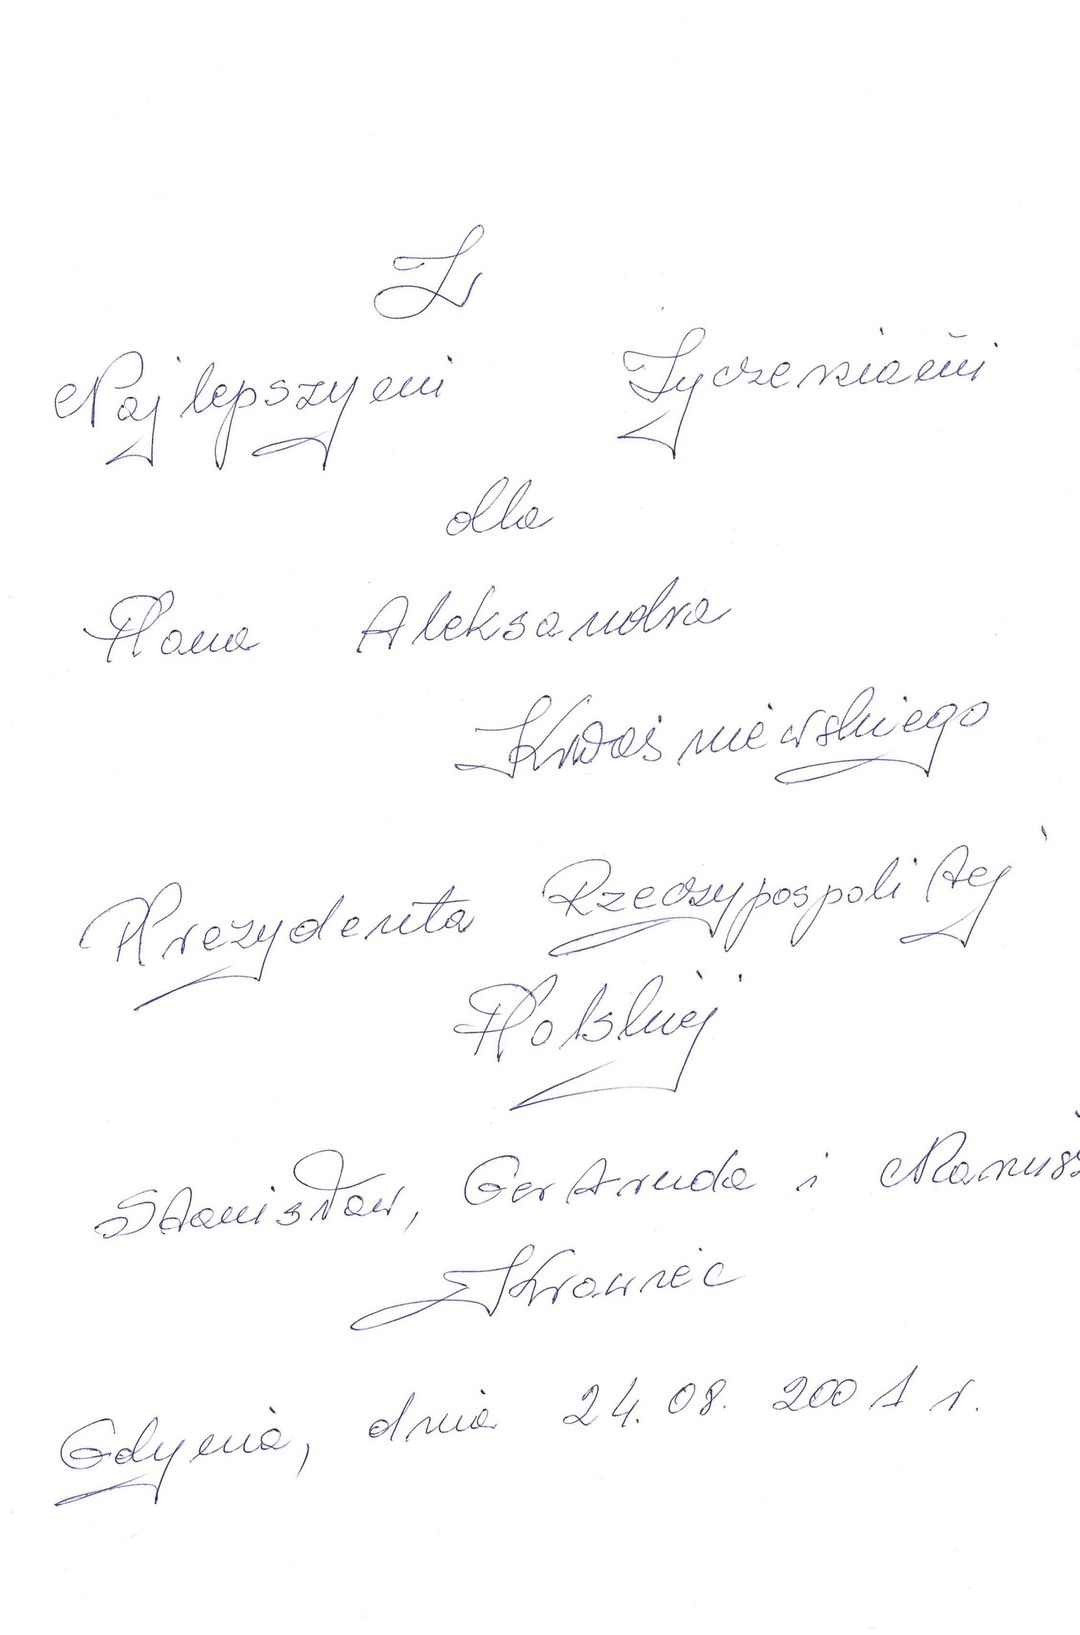 Z
Najlepszymi Życzeniami
dla
Pana Aleksandra
Kwaśniewskiego
Prezydenta Rzeczypospolitej
Polskiej
Stanisław, Gertruda i
Krawiec
Gdynia, dnia 24.08.2001 r.